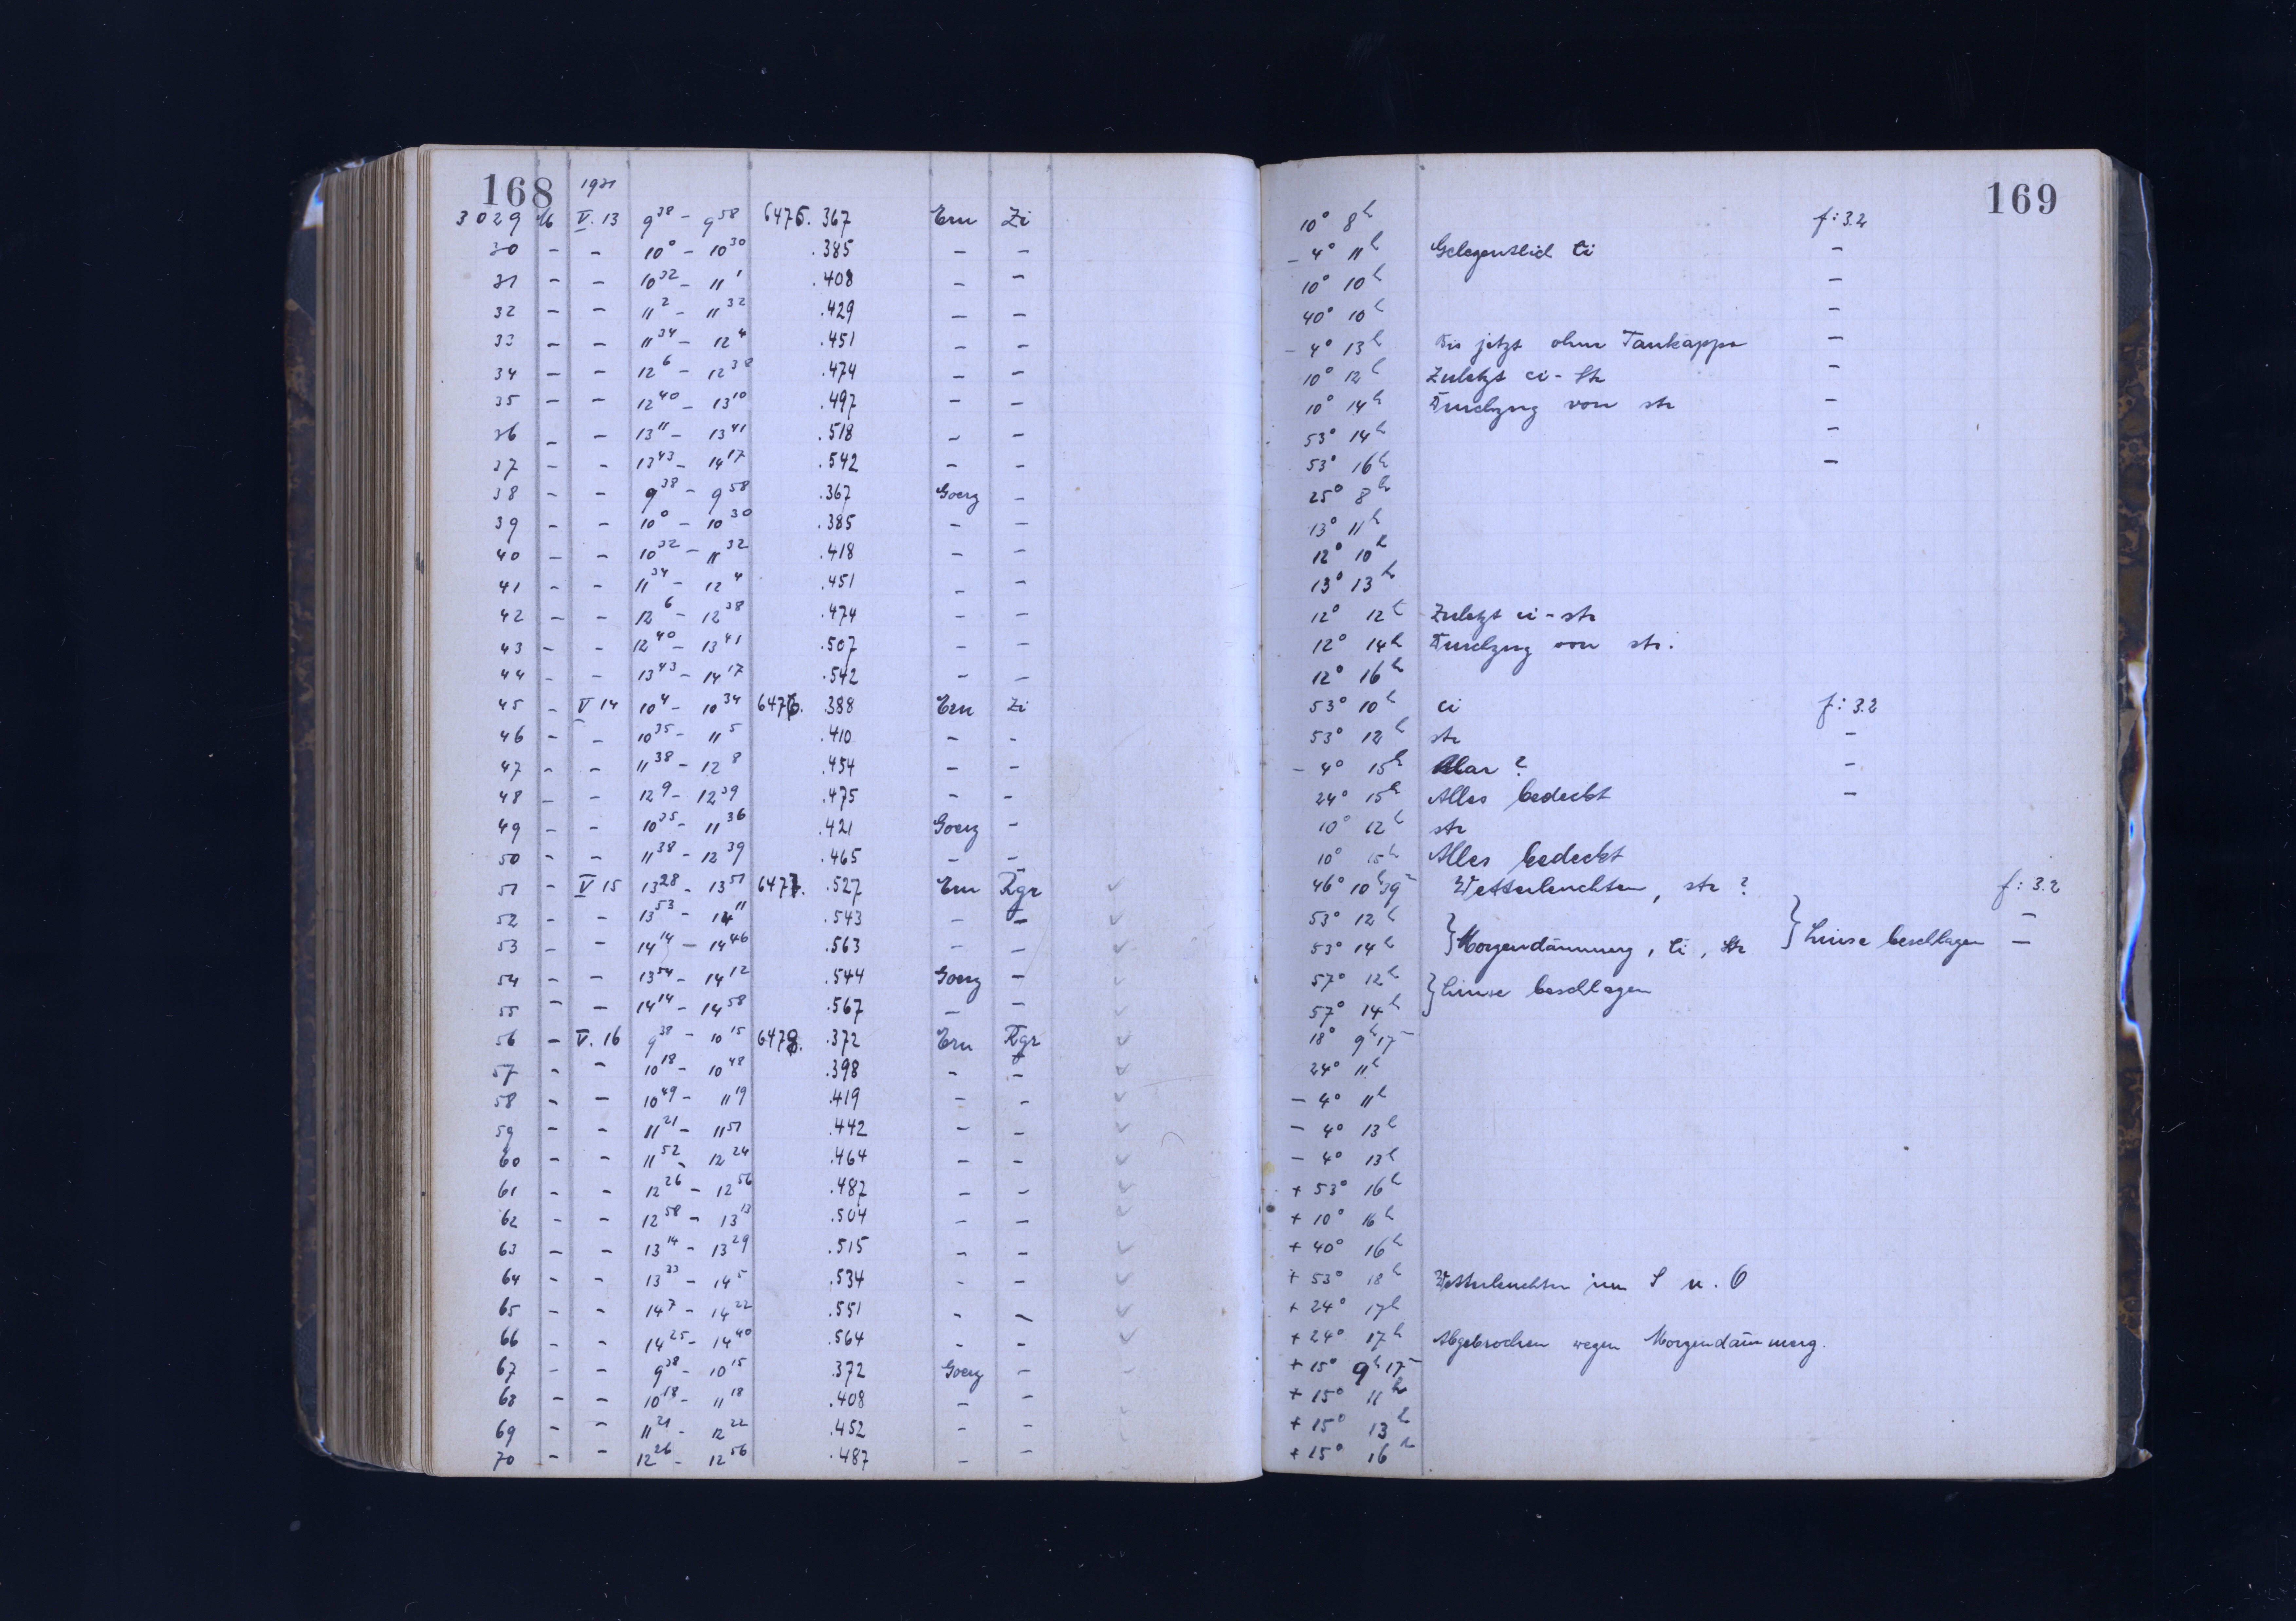 168 1931
3029 16 V. 13 9 38 – 9 58 6475. 367 Ern Zi 10° 8h f: 3.2
30 – – 10 0 – 10 30 .385 – – – 4° 11h Gelegentlich Ci –
31 – – 10 32 – 11 1 .408 – – 10° 10h –
32 – – 11 2 – 11 32 .429 – – 40° 10h –
33 – – 11 34 – 12 4 .451 – – – 4° 13h Bis jetzt ohne Taukappe –
34 – – 12 6 – 12 38 .474 – – 10° 12h Zuletzt ci-str –
35 – – 12 40 – 13 10 .497 – – 10° 14h Durchzug von str –
36 – – 13 11 – 13 41 .518 – – 53° 14h –
37 – – 13 43 – 14 17 .542 – – 53° 16h –
38 – – 9 38 – 9 58 .367 Goerz – 25° 8h
39 – – 10 0 – 10 30 .385 – – 13° 11h
40 – – 10 32 – 11 32 .418 – – 12° 10h
41 – – 11 34 – 12 4 .451 – – 13° 13h
42 – – 12 6 – 12 38 .474 – – 12° 12h Zuletzt ci-str
43 – – 12 40 – 13 41 .507 – – 12° 14h Durchzug von str.
44 – – 13 43 – 14 17 .542 – – 12° 16h
45 – V 14 10 4 – 10 34 6476. 388 Ern Zi 53° 10h ci f: 3.2
46 – – 10 35 – 11 5 .410 – – 53° 12h str –
47 – – 11 38 – 12 8 .454 – – – 4° 15h Klar? –
48 – – 12 9 – 12 39 .475 – – 24° 15h Alles bedeckt –
49 – – 10 35 – 11 36 .421 Goerz – 10° 12h str
50 – – 11 38 – 12 39 .465 – – 10° 15h Alles bedeckt
51 – V 15 13 28 – 13 51 6477. .527 Ern Kgr 46° 10h 39m Wetterleuchten, str? f: 3.2
52 – – 13 53 – 14 11 .543 – – 53° 12h –
53 – – 14 14 – 14 46 .563 – – 53° 14h } Morgendämmerg, Ci, Str } Linse beschlagen –
54 – – 13 54 – 14 12 .544 Goerz – 57° 12h
55 – – 14 14 – 14 58 .567 – – 57° 14h } Linse beschlagen
56 – V. 16 9 38 – 10 15 6478. .372 Ern Kgr 18° 9h 17m
57 – – 10 18 – 10 48 .398 – – 24° 11h
58 – – 10 49 – 11 19 .419 – – – 4° 11h
59 – – 11 21 – 11 51 .442 – – – 4° 13h
60 – – 11 52 – 12 24 .464 – – – 4° 13h
61 – – 12 26 – 12 56 .487 – – + 53° 16h
62 – – 12 58 – 13 13 .504 – – + 10° 16h
63 – – 13 14 – 13 29 .515 – – + 40° 16h
64 – – 13 33 – 14 5 .534 – – + 53° 18h Wetterleuchten im S u. O
65 – – 14 7 – 14 22 .551 – – + 24° 17h
66 – – 14 25 – 14 40 .564 – – + 24° 17h Abgebrochen wegen Morgendämmerg.
67 – – 9 38 – 10 15 .372 Goerz – + 15° 9h 17m
68 – – 10 18 – 11 18 .408 – – + 15° 11h
69 – – 11 21 – 12 22 .452 – – + 15° 13h
70 – – 12 26 – 12 56 .487 – – + 15° 16h
169